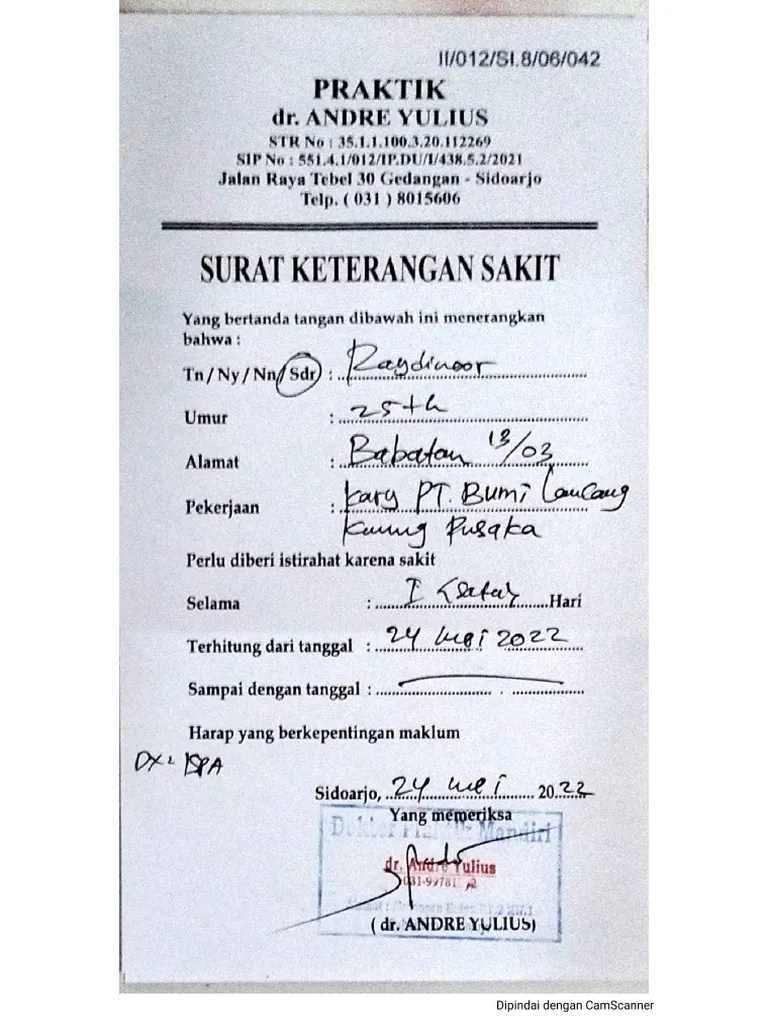 II/012/SI.8/06/042
PRAKTIK
dr. ANDRE YULIUS
STR No : 35.1.1.100.3.20.112269
SIP No : 551.4.1/012/IP.DU/I/438.5.2/2021
Jalan Raya Tebel 30 Gedangan - Sidoarjo
Telp. ( 031 ) 8015606
SURAT KETERANGAN SAKIT
Yang bertanda tangan dibawah ini menerangkan
bahwa :
Tn / Ny / Nn / Sdr : Raydinoor
Umur : 25 th
Alamat : Babatan 13/03
Pekerjaan : kary PT. Bumi Lancang
Kuning Pusaka
Perlu diberi istirahat karena sakit
Selama : I (satu) Hari
Terhitung dari tanggal : 24 Mei 2022
Sampai dengan tanggal :
Harap yang berkepentingan maklum
DX : ISPA
Sidoarjo, 24 Mei 2022
Yang memeriksa
Dokter Praktik Mandiri
dr. Andre Yulius
031-99781
( dr. ANDRE YULIUS)
Dipindai dengan CamScanner